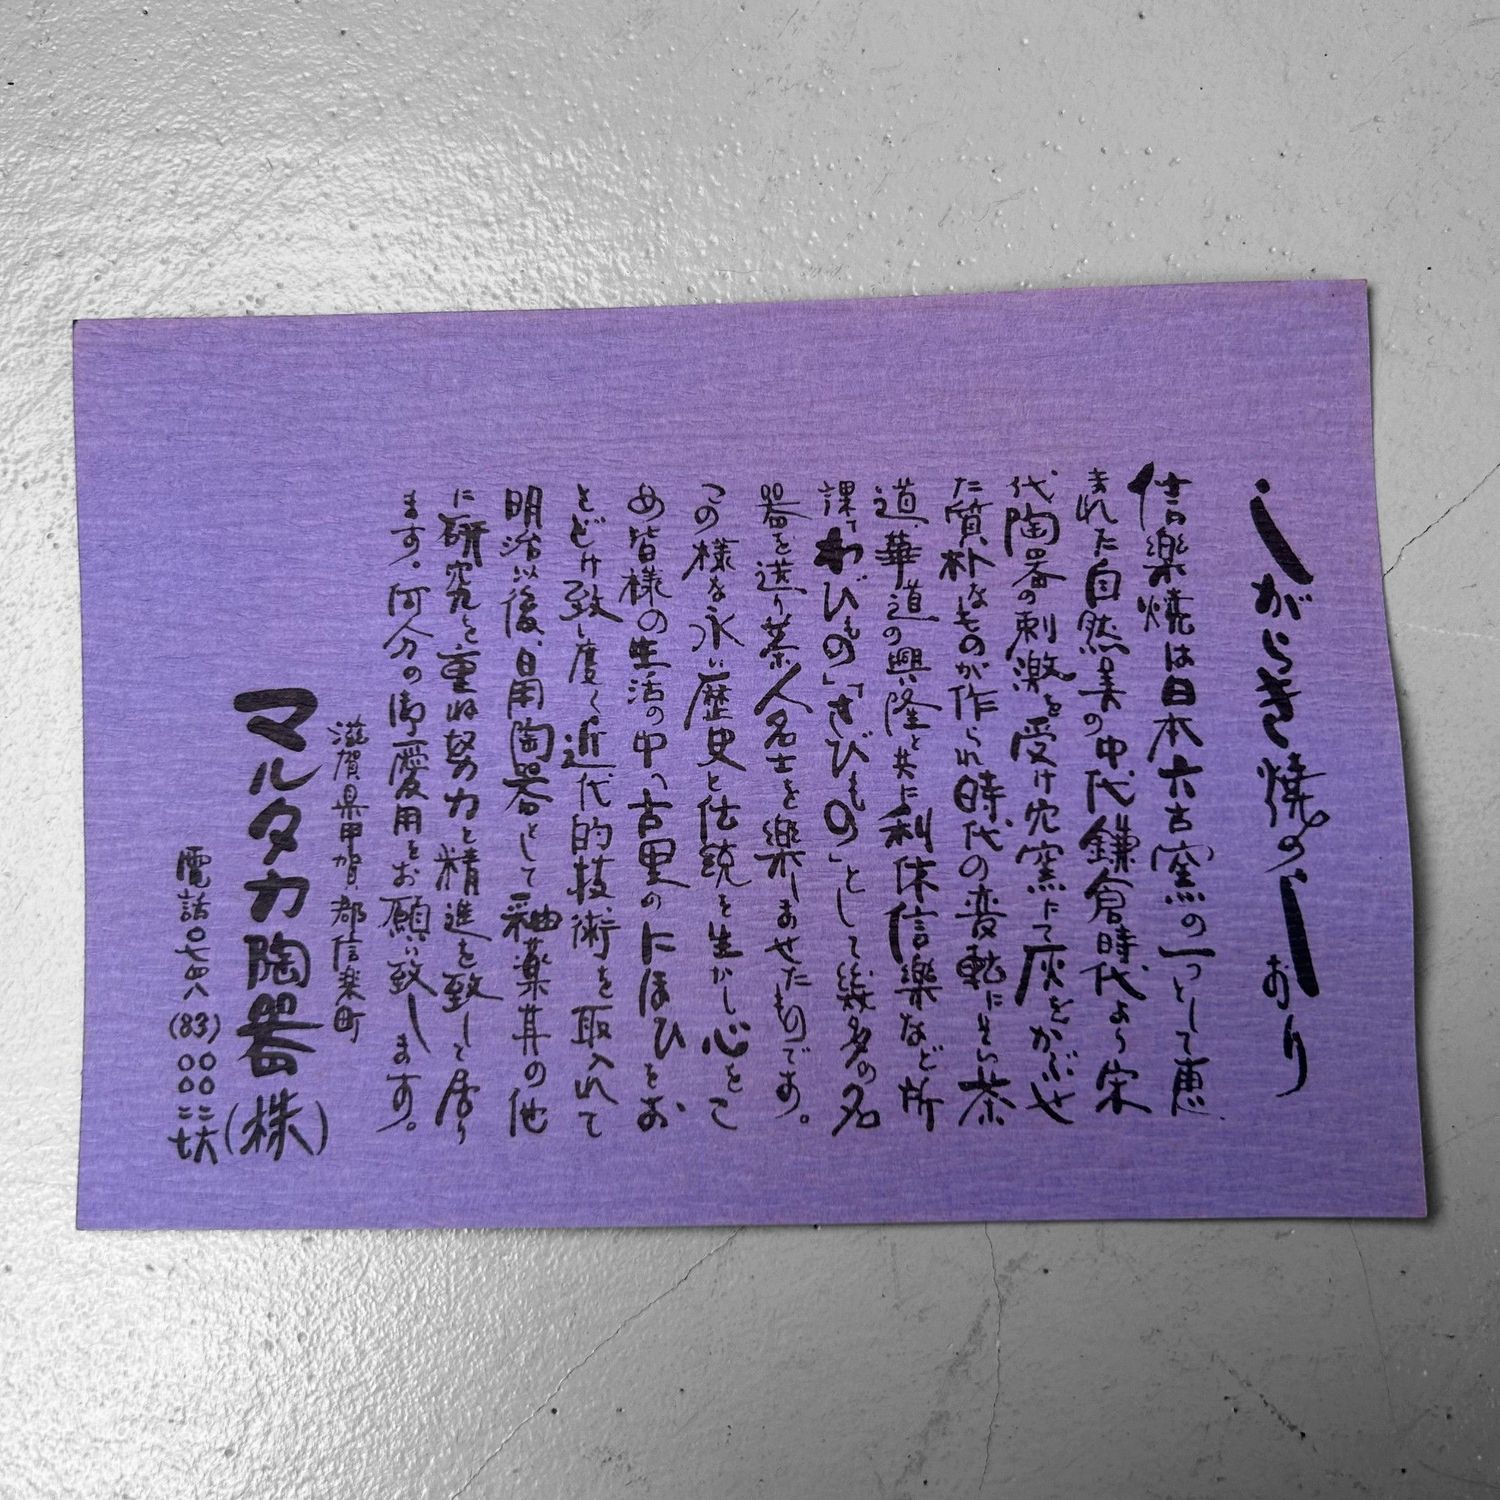 しがらき焼のしおり
信楽焼は日本六古窯の一つとして恵
まれた自然美の中代鎌倉時代より宋
代陶器の刺激を受け穴窯にて灰をかぶせ
た質朴なものが作られ時代の変転にそい茶
道、華道の興隆と共に利休信楽など所
課「わびもの」「さびもの」として幾多の名
器を造り茶人名士を楽しませたものです。
この様な永い歴史と伝統を生かし心をこ
め皆様の生活の中へ古里のにほひをお
とどけ致し度く近代的技術を取入れて
明治以後、日用陶器として釉薬其の他
に研究を重ね努力と精進を致して居り
ます。何分の御愛用をお願い致します。
滋賀県甲賀郡信楽町
マルタカ陶器(株)
電話〇七四八(83)〇〇二六
〇〇二七